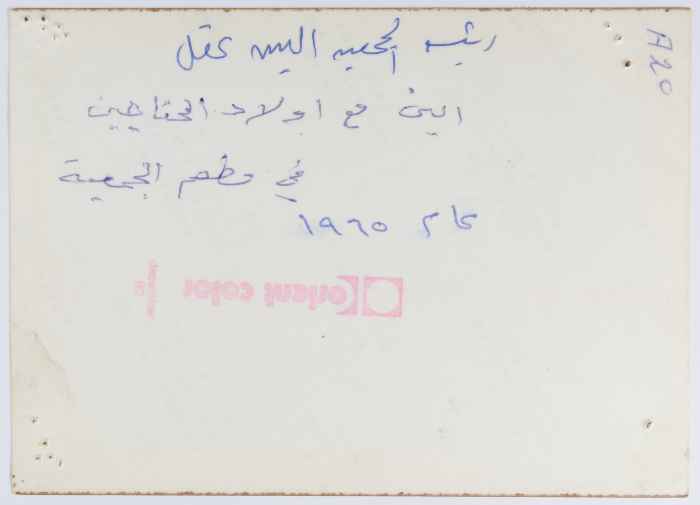 رئيسه الجمعيه اليس عقل
اليس مع اولاد المحتاجين
في مطعم الجمعية
عام ١٩٦٥
A20
orient color
december 82